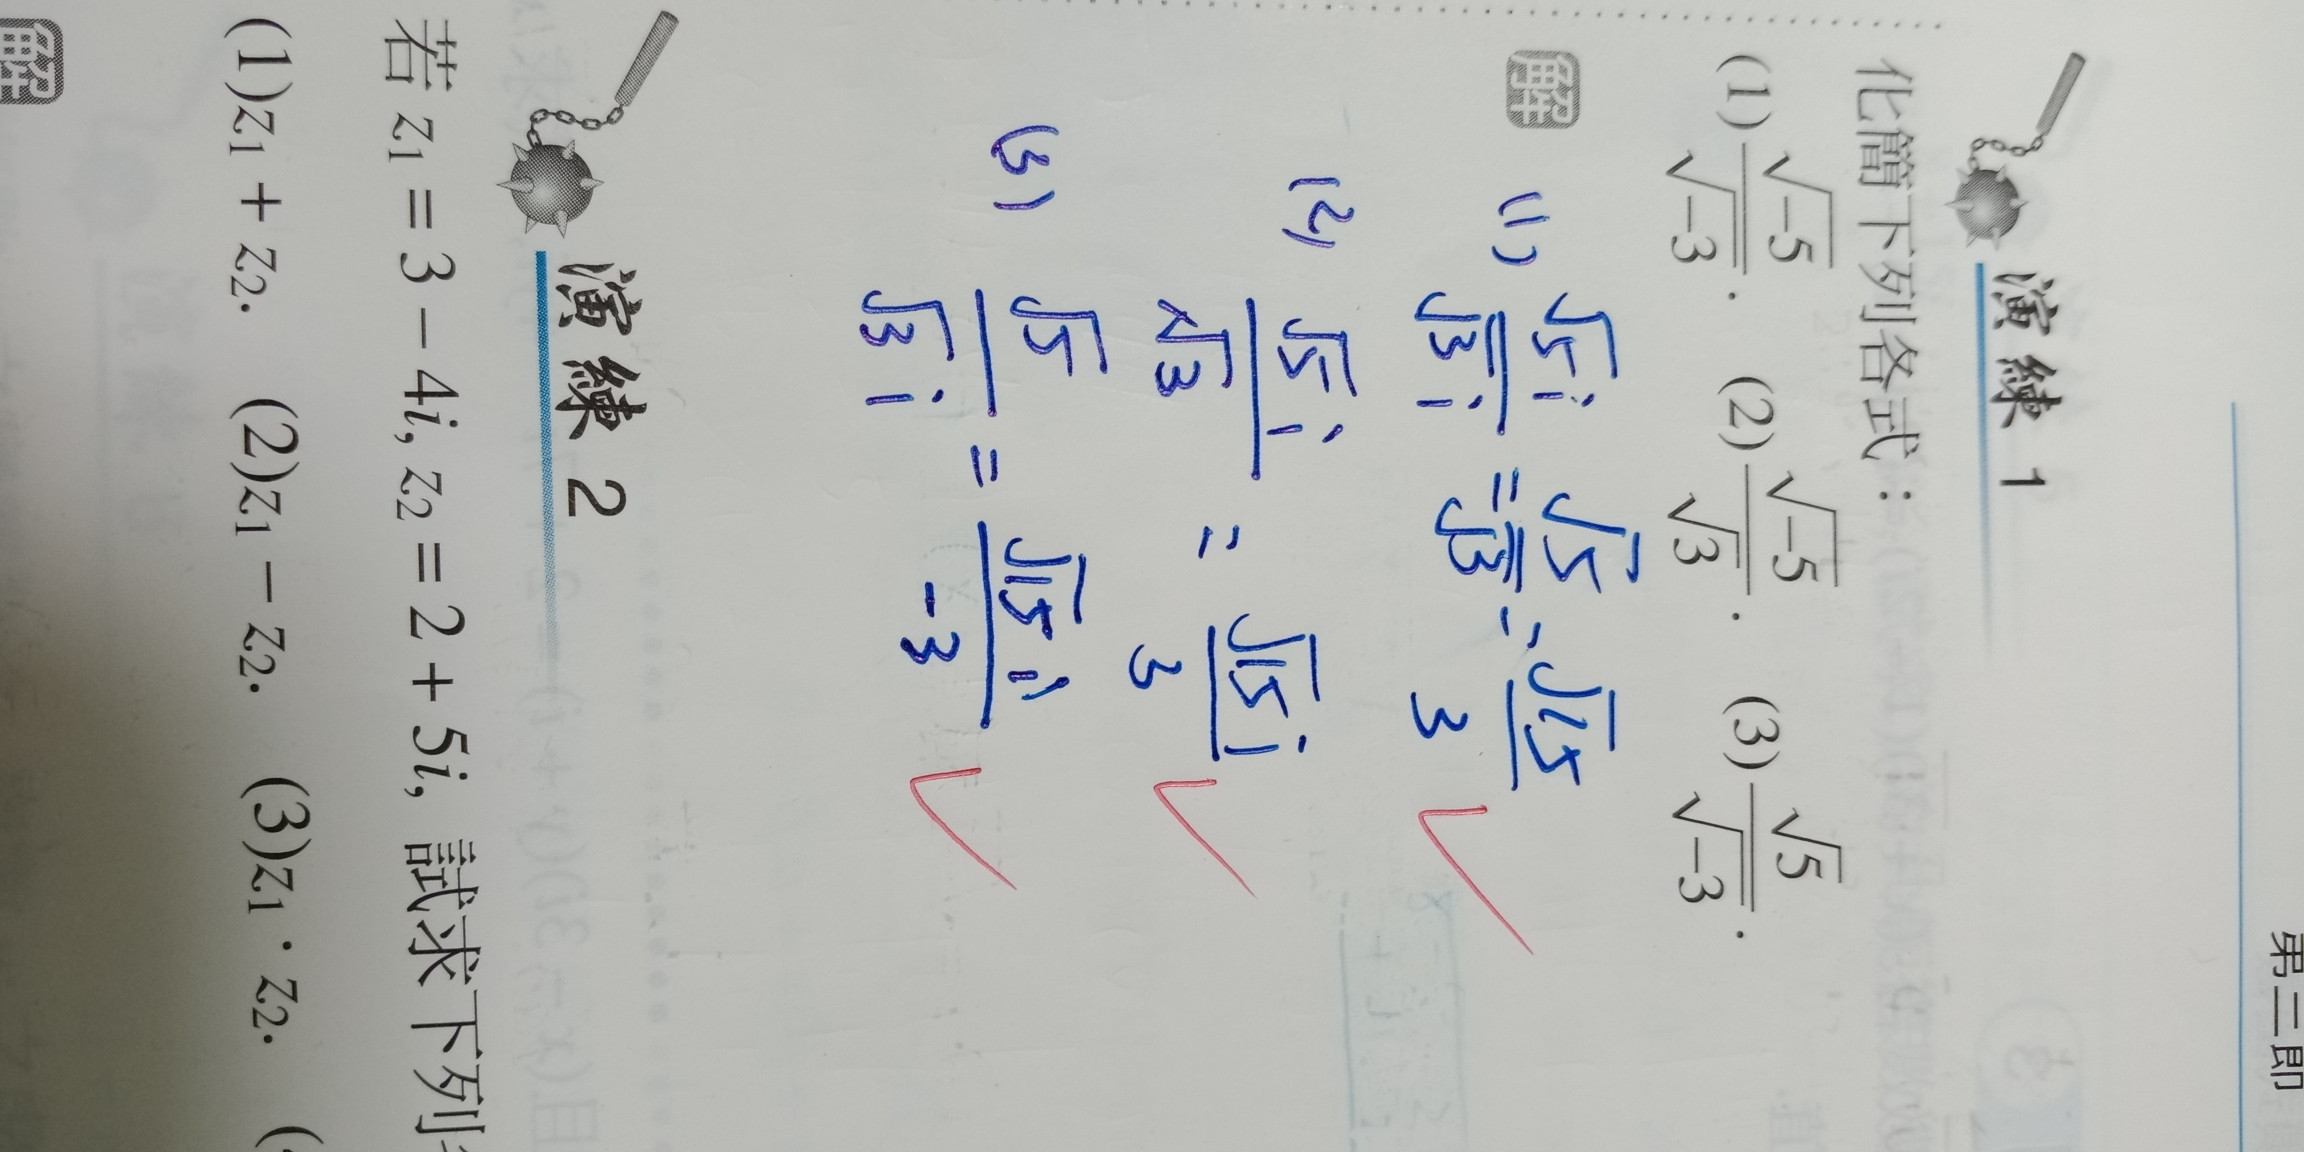 第三
演練 1
化簡下列各式：
(1) √-5/√-3 . (2) √-5/√3 . (3) √5/√-3 .
解
(1) √5 i/√3 i = √5/√3 = √15/3
(2) √5 i/√3 = √15 i/3
(3) √5/√3 i = √15 i/-3
演練 2
若 z₁ = 3 − 4i, z₂ = 2 + 5i, 試求下列
(1)z₁ + z₂. (2)z₁ − z₂. (3)z₁ · z₂. (
解